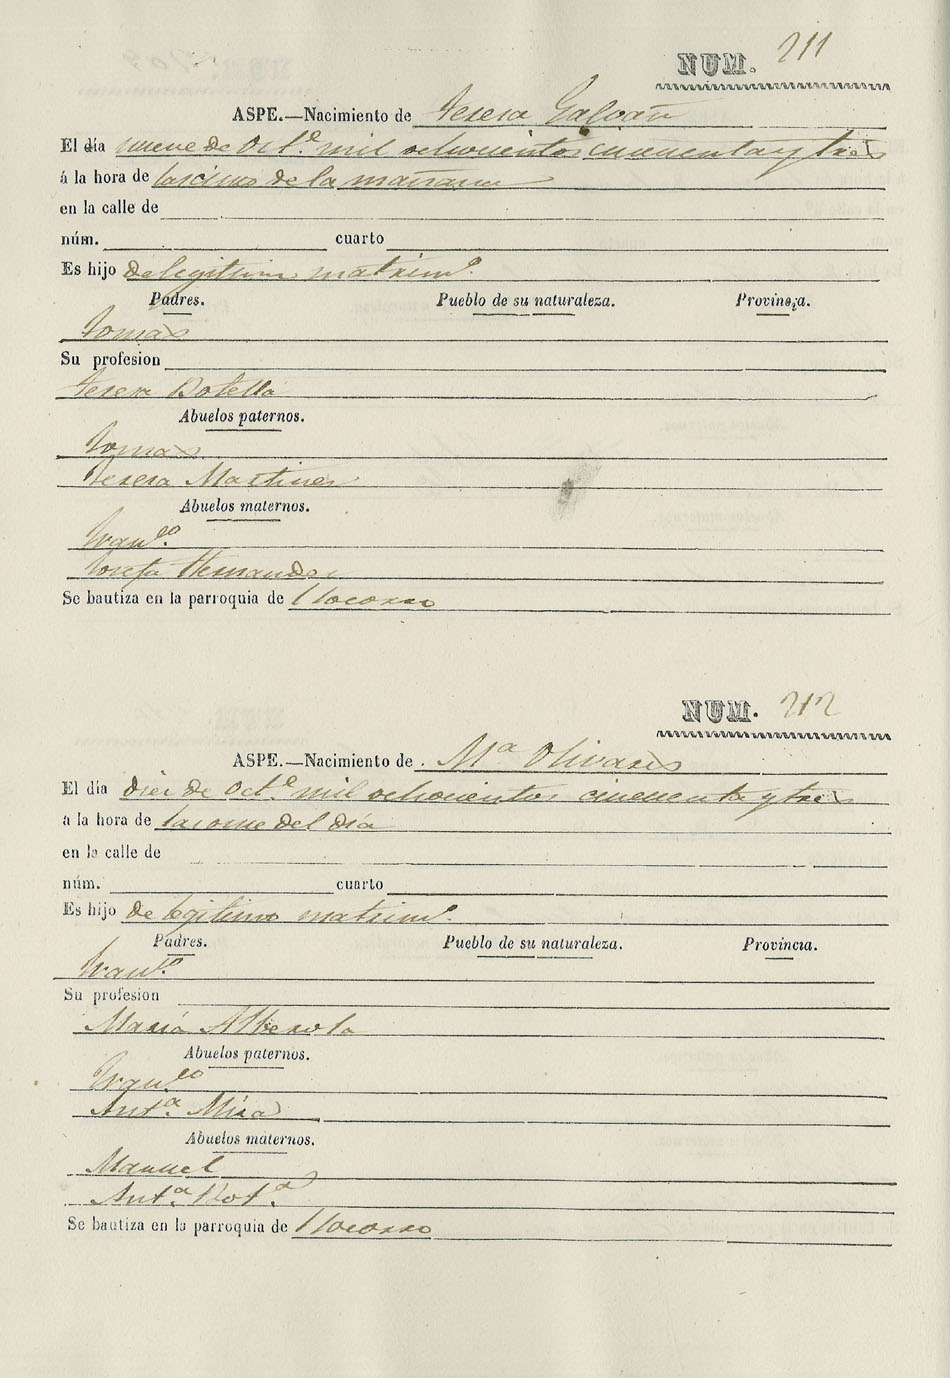 NUM. 211
ASPE.—Nacimiento de Teresa Galvañ
El día nueve de Oct.e mil ochocientos cincuenta y tres
á la hora de las cinco de la mañana
en la calle de
núm. cuarto
Es hijo de legitimo matrim.o
Padres. Pueblo de su naturaleza. Provincia.
Tomas
Su profesion
Teresa Botella
Abuelos paternos.
Tomas
Teresa Martinez
Abuelos maternos.
Fran.co
Josefa Hernandez
Se bautiza en la parroquia de Socorro
NUM. 212
ASPE.—Nacimiento de M.a Olivares
El día diez de Oct.e mil ochocientos cincuenta y tres
á la hora de las once del dia
en la calle de
núm. cuarto
Es hijo de legitimo matrim.o
Padres. Pueblo de su naturaleza. Provincia.
Fran.co
Su profesion
Maria Alberola
Abuelos paternos.
Fran.co
Ant.a Mira
Abuelos maternos.
Manuel
Ant.a
Se bautiza en la parroquia de Socorro